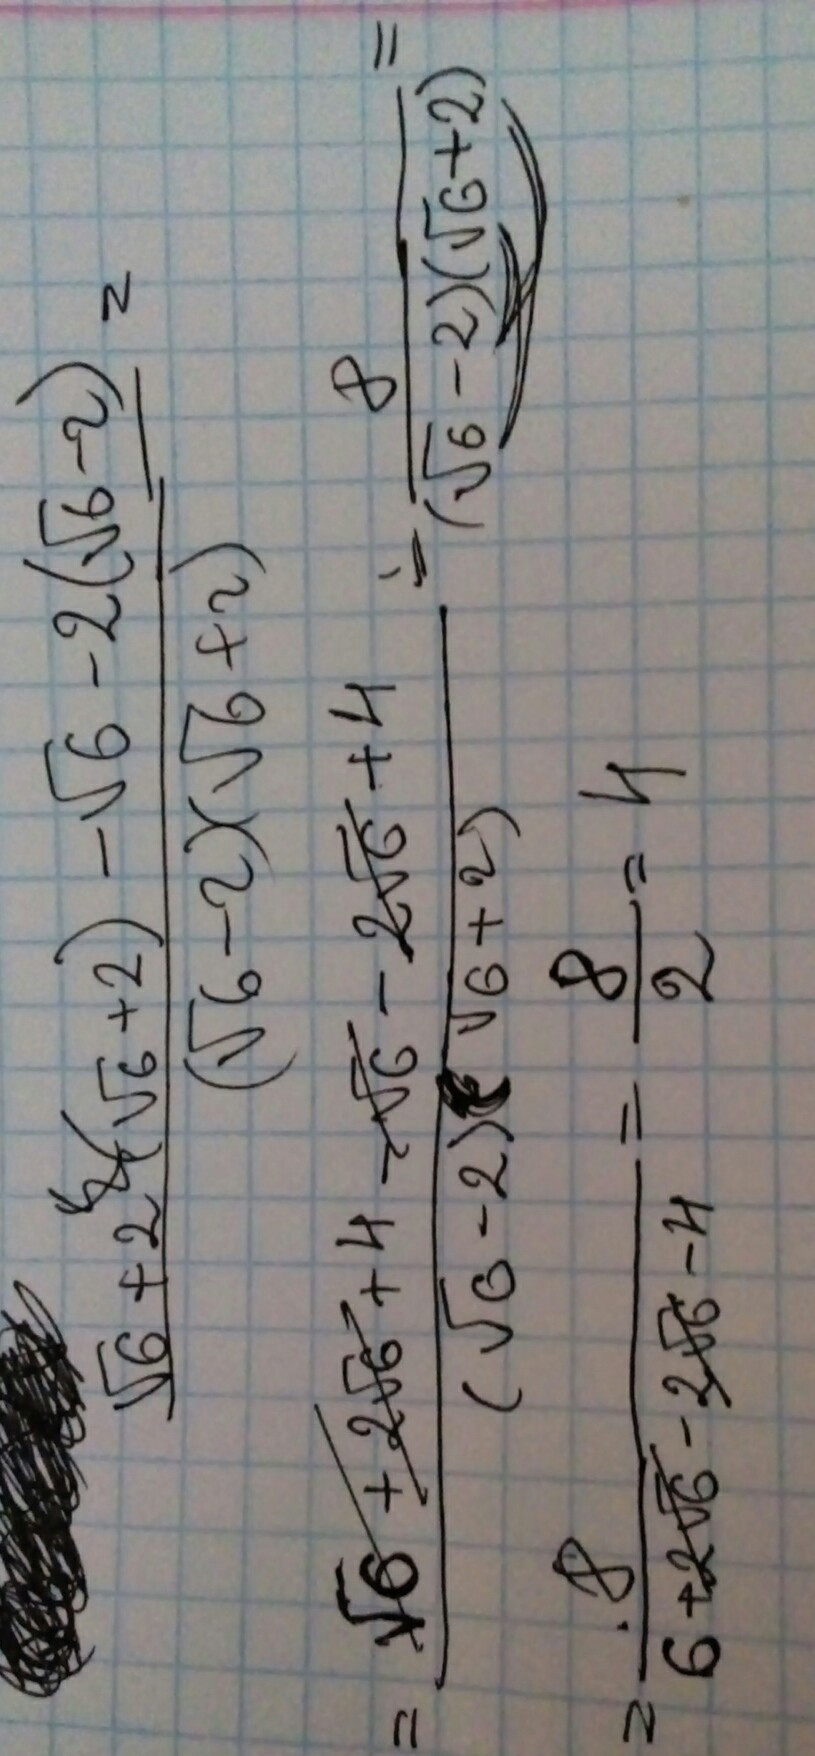 √6 + 2(√6 + 2) - √6 - 2(√6 - 2) =
(√6 - 2)(√6 + 2)
= √6 + 2√6 + 4 - √6 - 2√6 + 4 = 8 =
(√6 - 2)(√6 + 2) (√6 - 2)(√6 + 2)
= 8 = 8 = 4
6 + 2√6 - 2√6 - 4 2